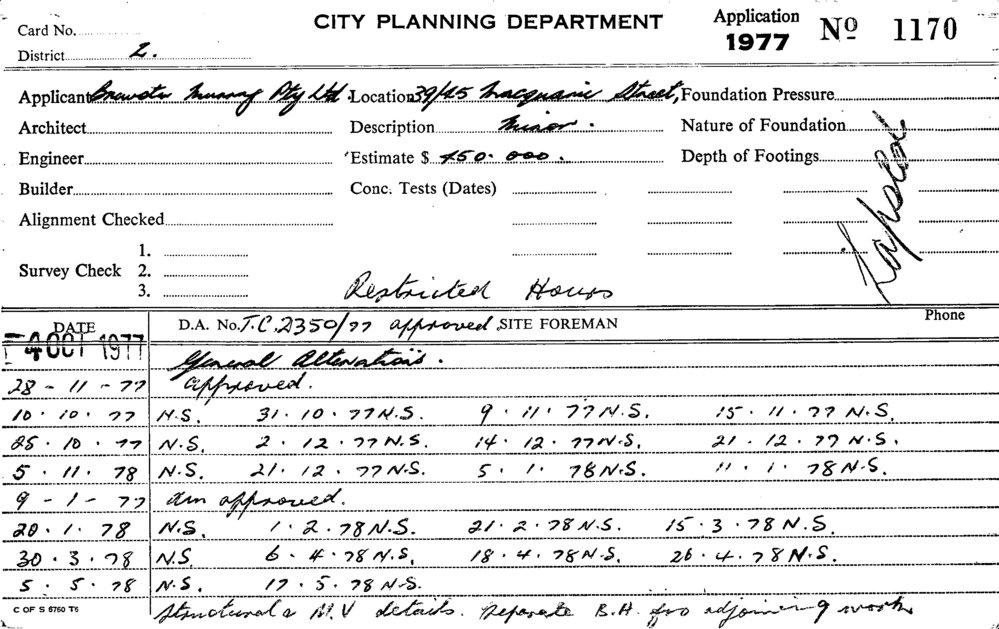 Card No.
CITY PLANNING DEPARTMENT
Application 1977 No 1170
District 2.
Applicant Brewster Murray Pty Ltd. Location 39/45 Macquarie Street, Foundation Pressure
Architect Description Minor. Nature of Foundation
Engineer Estimate $ 450.000. Depth of Footings
Builder Conc. Tests (Dates)
Alignment Checked
1.
Survey Check 2.
3.
Restricted Hours
DATE D.A. No. T.C. 2350/77 approved, SITE FOREMAN Phone
4 OCT 1977 General Alterations.
28 - 11 - 77 approved.
10 . 10 . 77 N.S. 31 . 10 . 77 N.S. 9 . 11 . 77 N.S. 15 . 11 . 77 N.S.
25 . 10 . 77 N.S. 2 . 12 . 77 N.S. 14 . 12 . 77 N.S. 21 . 12 . 77 N.S.
5 . 11 . 78 N.S. 21 . 12 . 77 N.S. 5 . 1 . 78 N.S. 11 . 1 . 78 N.S.
9 - 1 - 77 Am approved.
20 . 1 . 78 N.S. 1 . 2 . 78 N.S. 21 . 2 . 78 N.S. 15 . 3 . 78 N.S.
30 . 3 . 78 N.S. 6 . 4 . 78 N.S. 18 . 4 . 78 N.S. 26 . 4 . 78 N.S.
5 . 5 . 78 N.S. 17 . 5 . 78 N.S.
C OF S 6760 T6 Structural & M.V details. Separate B.A. for adjoining work